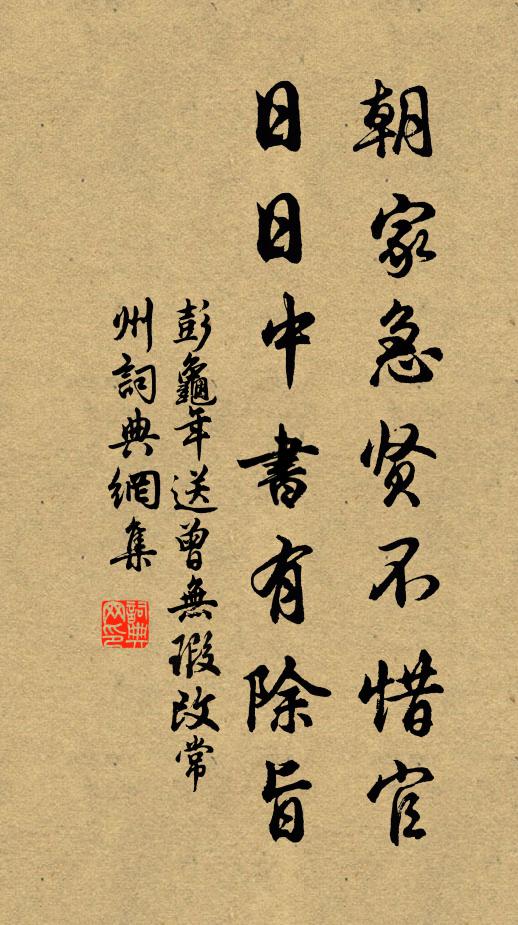 朝家急贤不惜官
日日中書有除旨
彭龜年送曾無瑕改常
州詞典網集
詞典网印